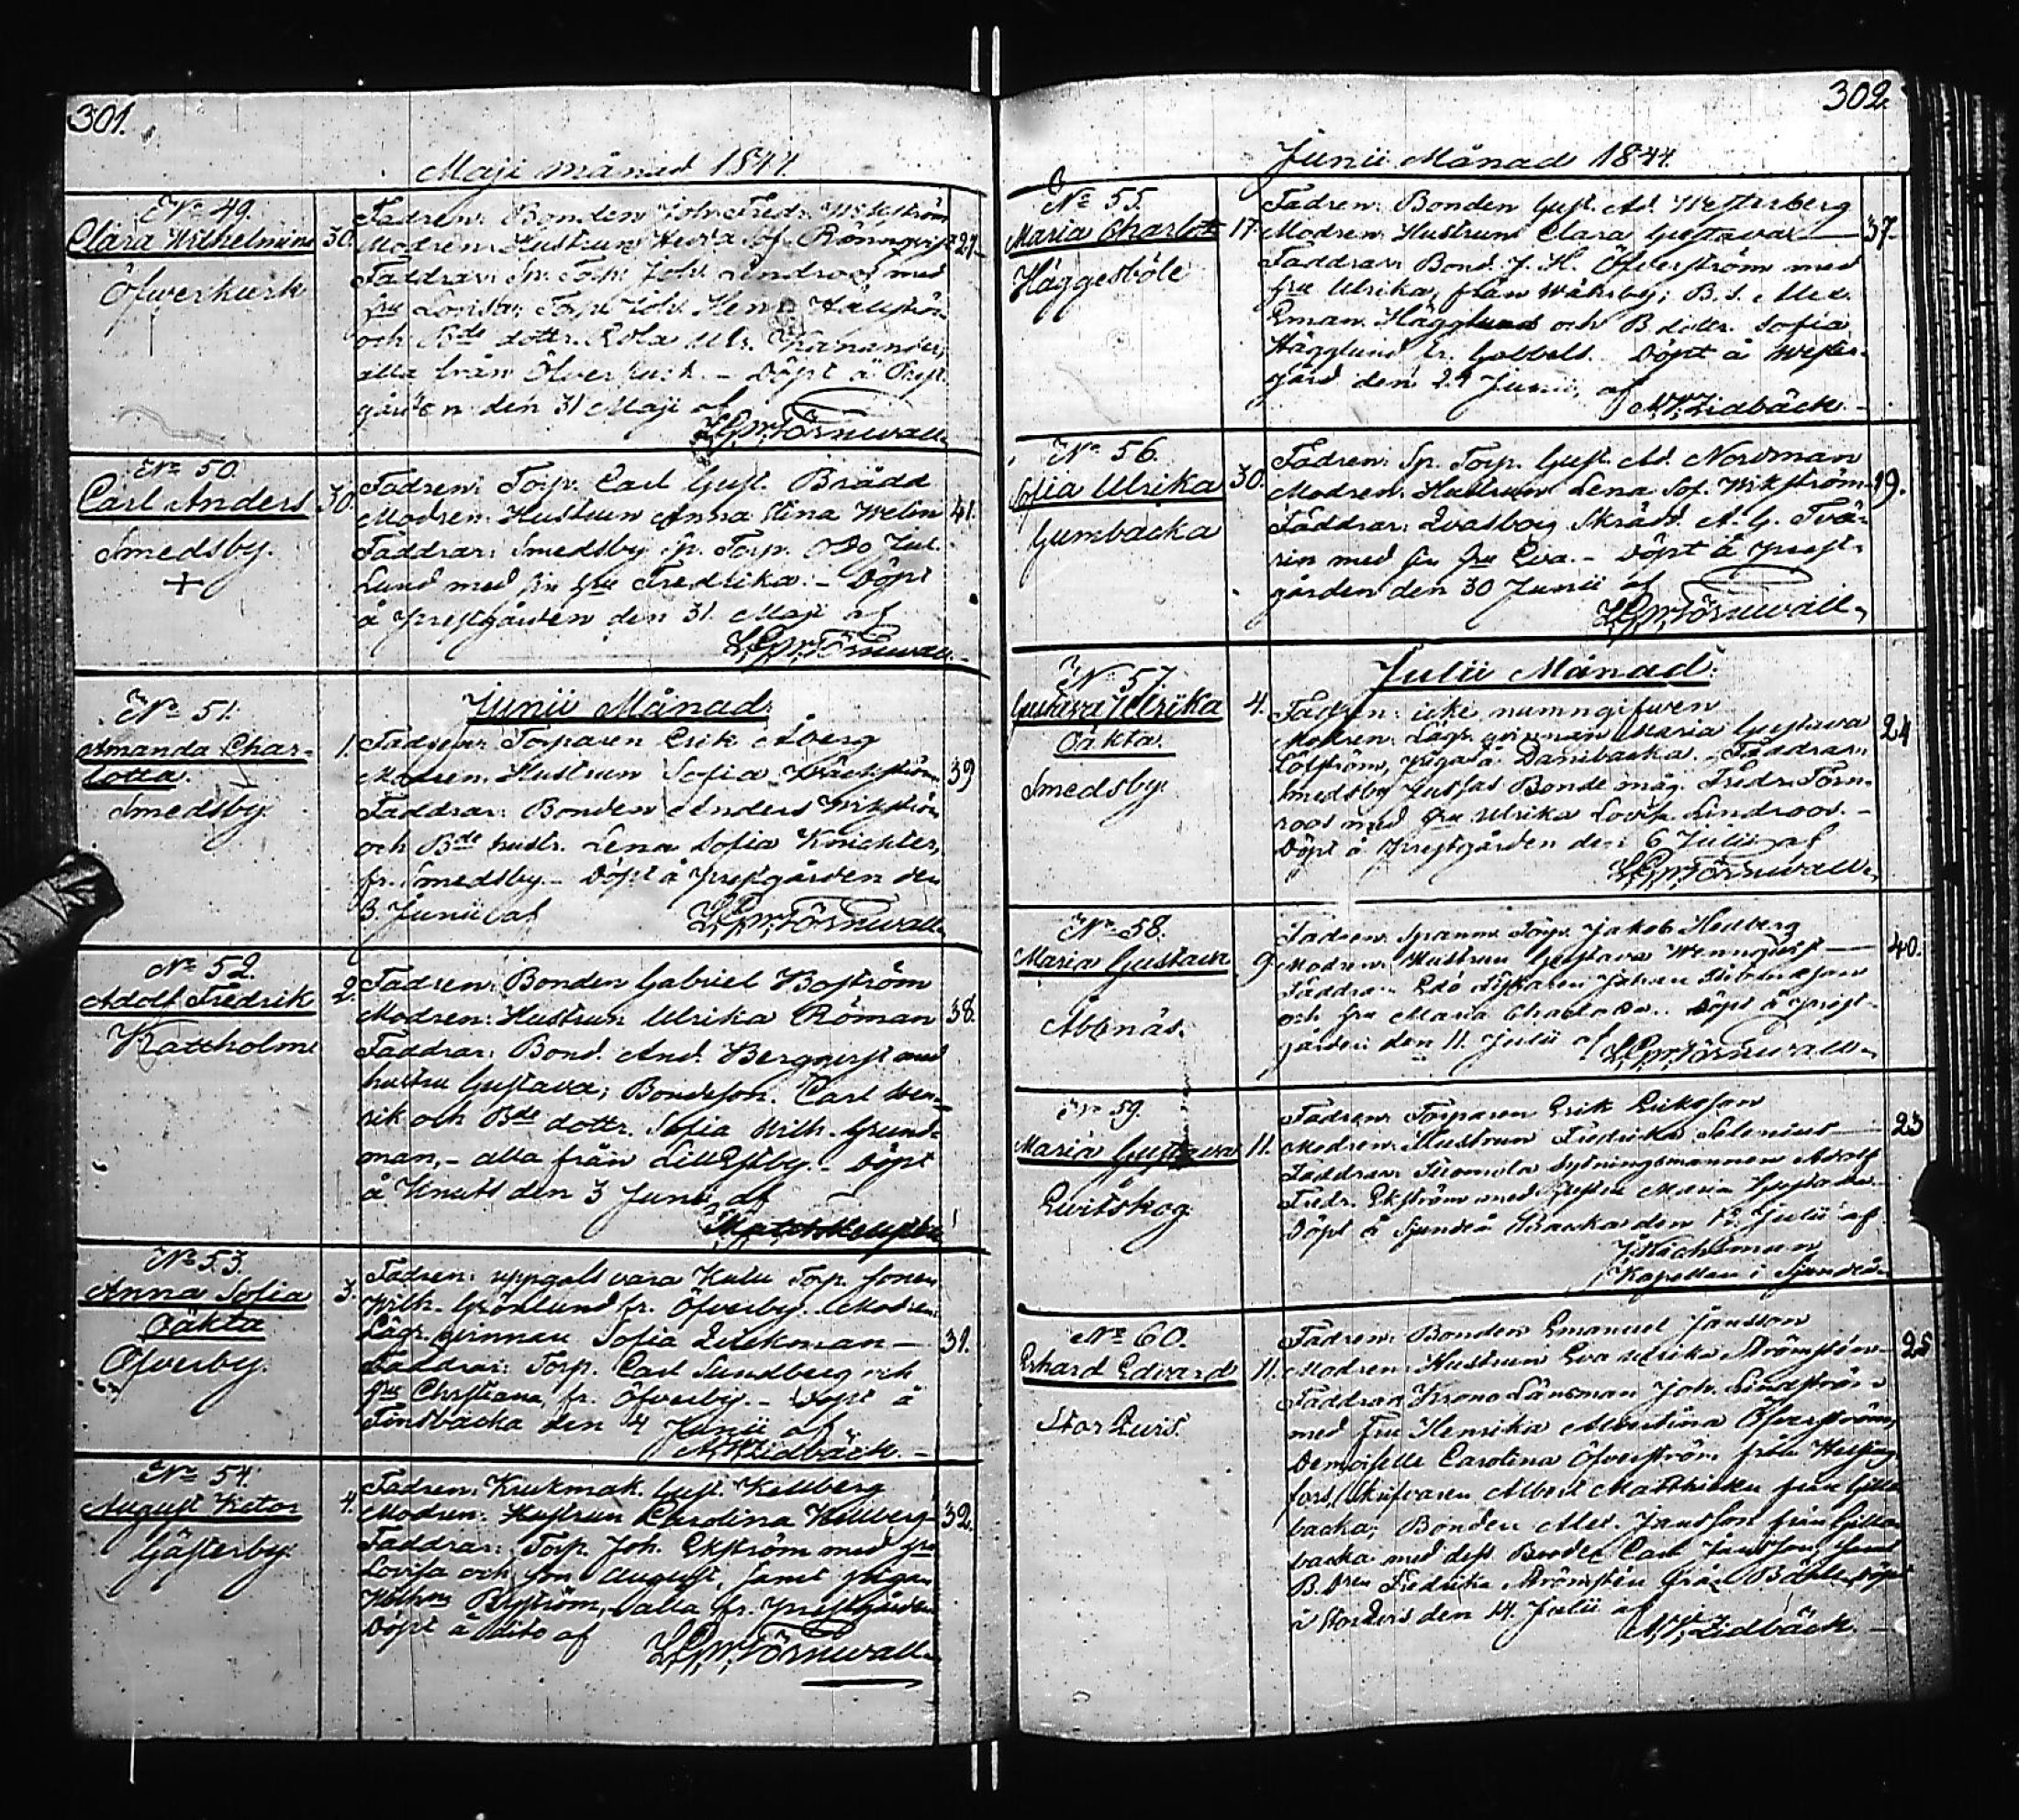 301.
Maji månad 1844.
No 49.
Clara Wilhelmina
Öfverkurk
30.
Fadren: Bonden Joh. Fredr. Wikström
Modren: Hustrun Hedra Sof. Rönnqvist
27.
Faddrar: Sp. Torp. Joh. Lindroos med
hru Lovisa; Torp. Joh. Henr. Hällström
och Bde dottr. Ulr.
alla från Öfverkurk. - Döpt å Prest-
gården den 31 Maji af
Törnwall
No 50.
Carl Anders
Smedsby.
+
30.
Fadren: Torp. Carl Gust. Brådd
Modren: Hustrun Anna Stina Welin
41.
Faddrar: Smedsby Sp. Torp.
Lund med sin hru Fredrika. - Döpt
å prestgården den 31. Maji af
Törnwall
Junii Månad.
No 51.
Amanda Char-
lotta
Smedsby.
1.
Fadren: Torparen Erik Åberg
Modren: Hustrun Sofia
39
Faddrar: Bonden Anders Wikström
och Bde hustr. Lena Sofia
fr. Smedsby. - Döpt å prestgården den
3 Junii af
Törnwall
No 52.
Adolf Fredrik
Kattholm
2.
Fadren: Bonden Gabriel Boström
Modren: Hustrun Ulrika Röman
38.
Faddrar: Bond. And. Bergqvist med
hustru Gustava; Bondeson. Carl Hen-
rik och Bde dottr. Sofia Wilh. Grund-
man, - alla från Lill Estby. - Döpt
å Knuts den 3 Junii af
No 53.
Anna Sofia
Oäkta
Öfverby.
3.
Fadren: uppgafs vara Torp. sonen
Wilh. Grönlund fr. Öfverby. Modren:
Lägr. qvinnan Sofia
31.
Faddrar: Torp. Carl Sundberg och
hru Christiana, fr. Öfverby. - Döpt å
Finsbacka den 4 Junii af
Lidbäck. -
No 54.
August Victor
Gästerby.
4.
Fadren: Krukmak. Gust. Killberg
Modren: Hustrun Carolina Killberg
32.
Faddrar: Torp. Joh. Ekström med hru
Lovisa och son August, samt pigan
alla fr. prestgården
Döpt å dito af
Törnwall
302.
Junii Månad 1844.
No 55.
Maria Charlot
Häggesböle
17
Fadren: Bonden Gust. Ad. Westerberg
Modren: Hustrun Clara Gustava
37.
Faddrar: Bond. J. H. Öfverström med
hru Ulrika, från Wåhrby; B. S.
Eman. Hägglund och B dottr. Sofia
Hägglund fr. Gobbels. Döpt å Wester-
gård den 24 Junii, af
Lidbäck. -
No 56.
Sofia Ulrika
Gumbacka
30.
Fadren: Sp. Torp. Gust. Ad. Nordman
Modren: Hustrun Lena Sof. Wikström
19.
Faddrar: Skrädd. A. G.
rin med sin hru Eva. - Döpt å prest-
gården den 30 Junii af
Törnwall
Julii Månad.
No 57.
Gustava Ulrika
Oäkta.
Smedsby.
4.
Fadren: icke namngifven
Modren: Lägr. qvinnan Maria Gustava
24
Löfström, piga å Danibacka. Faddrar:
Smedsby Jussas Bonde måg. Fredr. Törn-
roos med hru Ulrika Lovisa Lindroos. -
Döpt å prestgården den 6 Julii af
Törnwall
No 58.
Maria Gustava
Åbbnäs.
9.
Fadren: Torp. Jakob Hedberg
Modren: Hustrun Gustava Wennqvist
40.
Faddrar: Johan
och hru Maria Charlotta. Döpt å prest-
gården den 11. Julii af
Törnwall
No 59.
Maria Gustava
Evitskog
11.
Fadren: Torparen Erik Eriksson
Modren: Hustrun Fredrika Selenius
23
Faddrar: Sytningsmannen Adolf
Fredr. Ekström med Maria Gustava
Döpt å Sjundeå Backa den 12 Julii af
Kapellan i Sjundeå
No 60.
Erhard Edvard
Stor Avis.
11.
Fadren: Bonden Emanuel Jansson
Modren: Hustrun Eva Ulrika Strömstén
25
Faddrar: Krono Länsman Joh. Lindström
med fru Henrika Albertina Öfverström,
Demoiselle Carolina Öfverström från Helsing-
fors, Albert från Gilla
backa; Bonden Jansson från Gilla
backa med dess Carl Jansson samt
Fredrika Strömstén från Bäcks, Döpt
å den 14. Julii af
Lidbäck. -